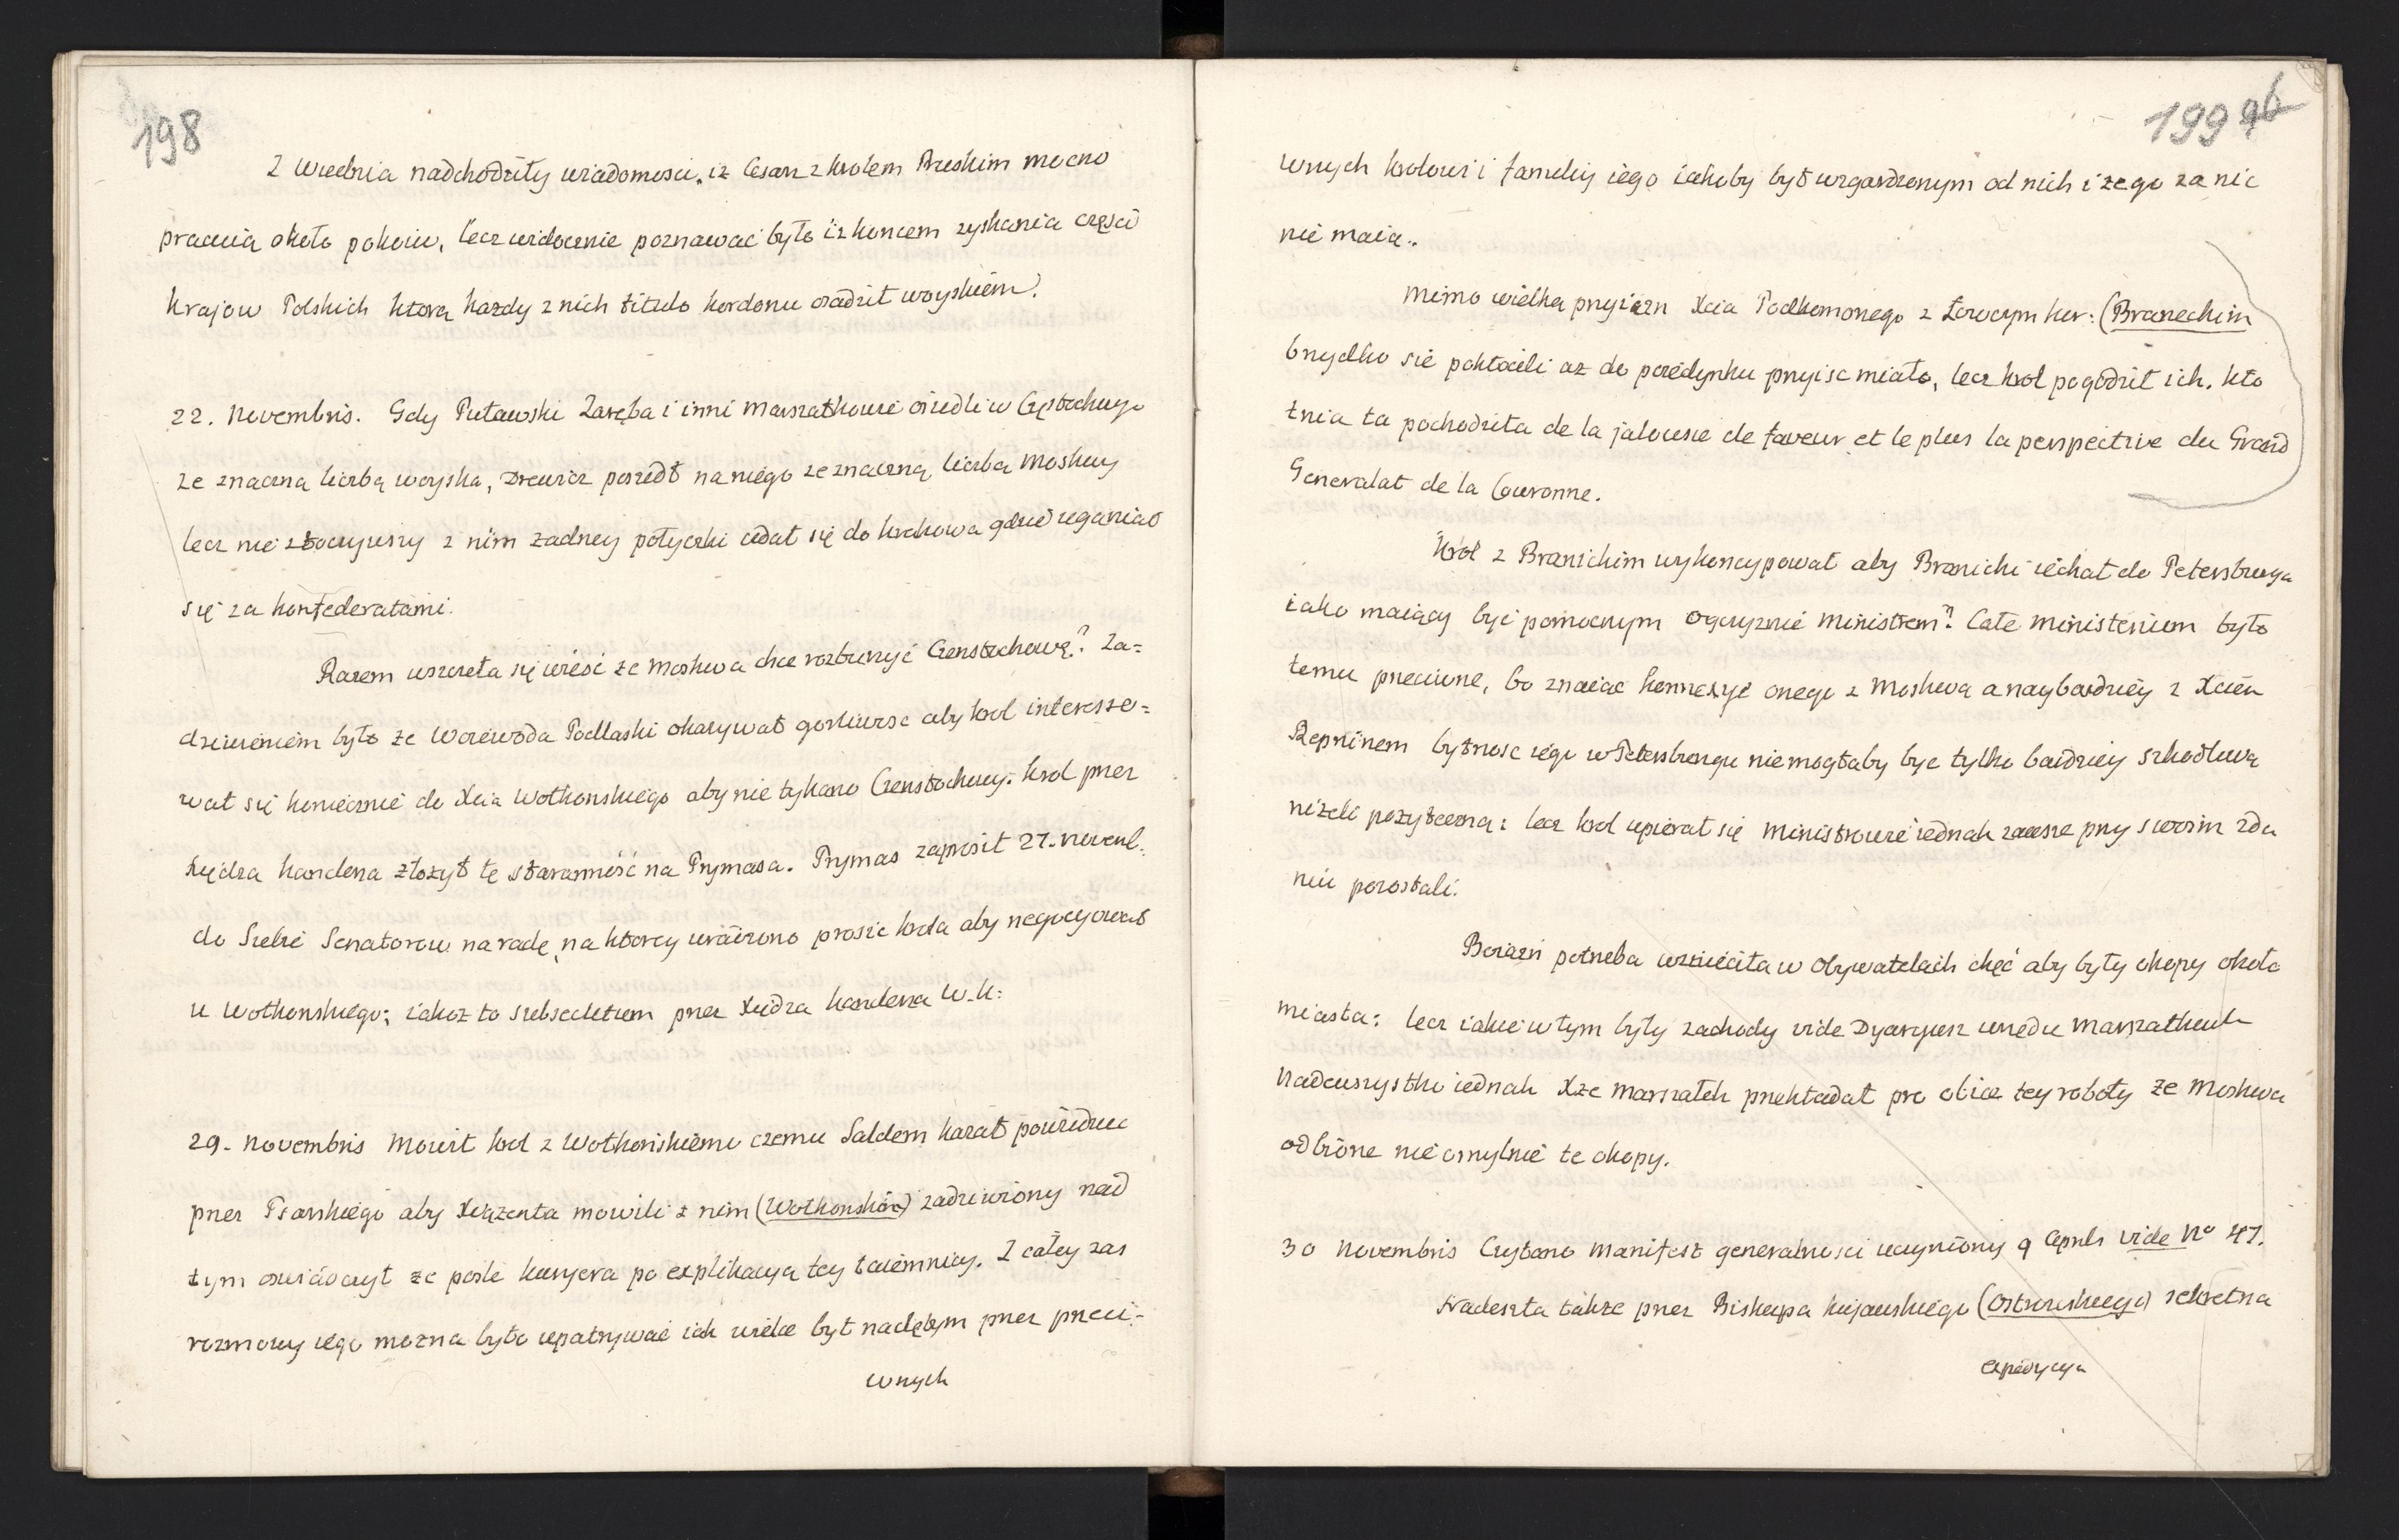 198
Z Wiednia nadchodziły wiadomości, iż Cesarz z Krolem Pruskim mocno
pracuią około pokoiu, lecz widocznie poznawać było iż koncem zyskania części
Krajow Polskich ktorą kazdy z nich titulo kordonu osadził woyskiem.
22. Novembris. Gdy Puławski Zaręba i inni Marszałkowie osiedli w Częstochowie
ze znaczną liczbą woyska, Drewicz poszedł na niego ze znaczną liczbą Moskwy
lecz nie stoczywszy z nim zadney potyczki udał się do Krakowa gdzie uganiał
się za konfederatami.
Razem wszczęła się wieść ze Moskwa chce rozburzyć Czenstochowę? Za=
dziwieniem było ze Woiewoda Podlaski okazywał gorliwość aby krol interesso=
wał się koniecznie do Xcia Wołkonskiego aby nie tykano Czenstochowy. Krol przez
Xiędza kanclerza złożył tę staranność na Prymasa. Prymas zaprosił 27. Novemb:
do siebie Senatorow na radę, na ktorey uradzono prosić krola aby negocyował
u Wołkonskiego; iakoz to subsecutum przez Xiędza kanclerza W. K:
29. Novembris Mowił krol z Wołkonskiem czemu Saldern kazał powiedziec
przez Psarskiego aby Xiązenta mowili z nim (Wołkonskim) zadziwiony nad
tym oswiadczył ze posle kuryera po explikacyą tey taiemnicy. Z całey zas
rozmowy iego mozna było upatrywać iak wiele był nadętym przez przeci=
wnych
199 96
wnych krolowi i familij iego iakoby był wzgardzonym od nich i ze go za nic
nie maią.
Mimo wielką przyiazn Xcia Podkomorzego z Łowczym kor: (Braneckim
brzydko się pokłocili az do poiedynku przyisc miało, lecz krol pogodził ich. Kło
tnia ta pochodziła de la jalousie de faveur et le plus la perspective du Grand
Generalat de la Couronne.
Krol z Branickim wykoncypował aby Branicki iechał do Petersburga
iako maiący być pomocnym Oyczyznie Ministrem? Całe ministerium było
temu przeciwne, bo znaiac konnexye onego z Moskwą a naybardziey z Xciem
Repninem bytnosc iego w Petersburgu nie mogłaby byc tylko bardziey szkodliwą
nizeli pozyteczną: lecz krol upierał się Ministrowie iednak zawsze przy swoim zda
niu pozostali.
Boiazń potrzeba wznieciła w Obywatelach chęć aby były okopy około
miasta: lecz iakie w tym były zachody vide Dyaryusz urzędu Marszałkowsk
Nadewszystko iednak Xze Marszałek przekładał pro obice tey roboty ze Moskwa
odbierze nieomylnie te okopy.
30 Novembris Czytano Manifest generalnosci uczyniony 9 Aprils vide No 47.
Nadeszła takze przez Biskupa kujawskiego (Ostrowskiego) sekretna
expedycya